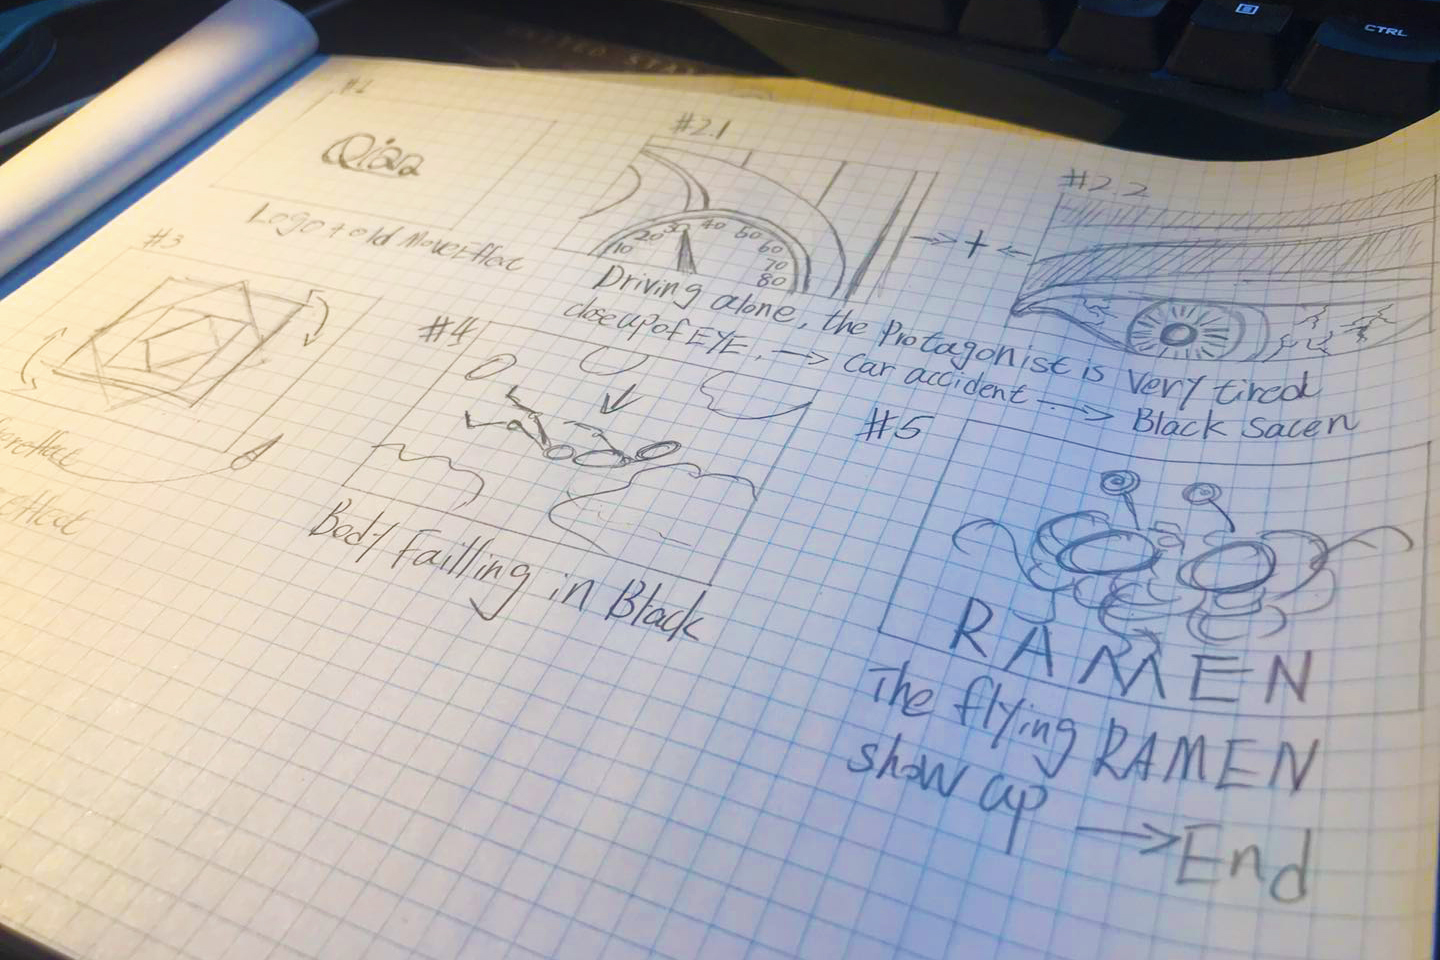 Logo + old Movie Effect
#2.1
10 20 30 40 50 60 70 80
Driving alone, the Protagonist is very tired
close up of EYE. → Car accident → Black Sacen
#2.2
#3
#4
Body Failling in Black
#5
RAMEN
The flying RAMEN
show up
→ End
CTRL